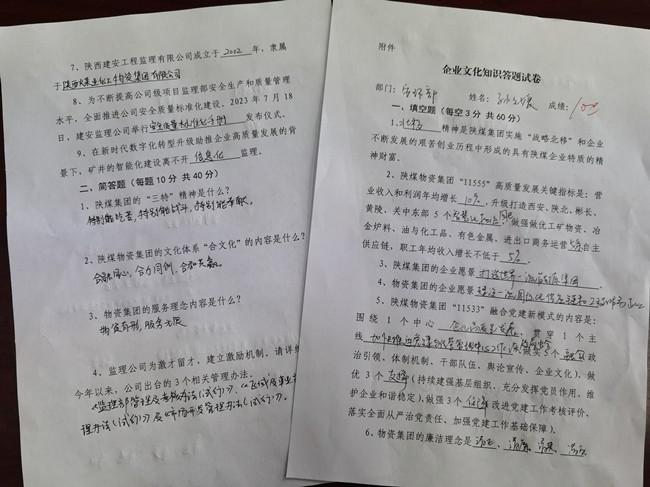 7、陕西建安工程监理有限公司成立于 2002 年，隶属
于陕西煤业化工物资集团有限公司
8、为不断提高公司级项目监理部安全生产和质量管理
水平，全面推进公司安全质量标准化建设，2023 年 7 月 18
日，建安监理公司举行安全质量标准化手册 发布仪式。
9、在新时代数字化转型升级助推企业高质量发展的背
景下，矿井的智能化建设离不开 信息化 监理。
二、简答题（每题 10 分 共 40 分）
1、陕煤集团的“三特”精神是什么？
特别能吃苦，特别能战斗，特别能奉献。
2、陕煤物资集团的文化体系“合文化”的内容是什么？
合融同心，合力同创，合和共赢。
3、物资集团的服务理念内容是什么？
物资有形，服务无限
4、监理公司为激才留才，建立激励机制，请详细
今年以来，公司出台的 3 个相关管理办法。
《监理部管理及考核办法（试行）》、
理办法（试行）》及 管理办法（试行）》。
附件
企业文化知识答题试卷
部门：安环部 姓名： 成绩：100
一、填空题（每空 3 分 共 60 分）
1、北移 精神是陕煤集团实施“战略北移”和企业
不断发展的艰苦创业历程中形成的具有陕煤企业特质的精
神财富。
2、陕煤物资集团“11555”高质量发展关键指标是：营
业收入和利润年均增长 10%，升级打造西安、陕北、彬长、
黄陵、关中东部 5 个 做强做优化工矿物资、冶
金炉料、油与化工品、有色金属、进出口商务运营5条自主
供应链，职工年均收入增长不低于 5%。
3、陕煤集团的企业愿景 打造世界一流 集团
4、物资集团的企业愿景 建设一流
5、陕煤物资集团“11533”融合党建新模式的内容是：
围绕 1 个中心 企业高质量发展，贯穿 1 个主
线 做实 5 个 融合（政
治引领、体制机制、干部队伍、舆论宣传、企业文化）、做
优 3 个 支撑（持续建强基层组织、充分发挥党员作用、维
护企业和谐稳定）、做强 3 个 保障（改进党建工作考核评价、
落实全面从严治党责任、加强党建工作基础保障）。
6、物资集团的廉洁理念是